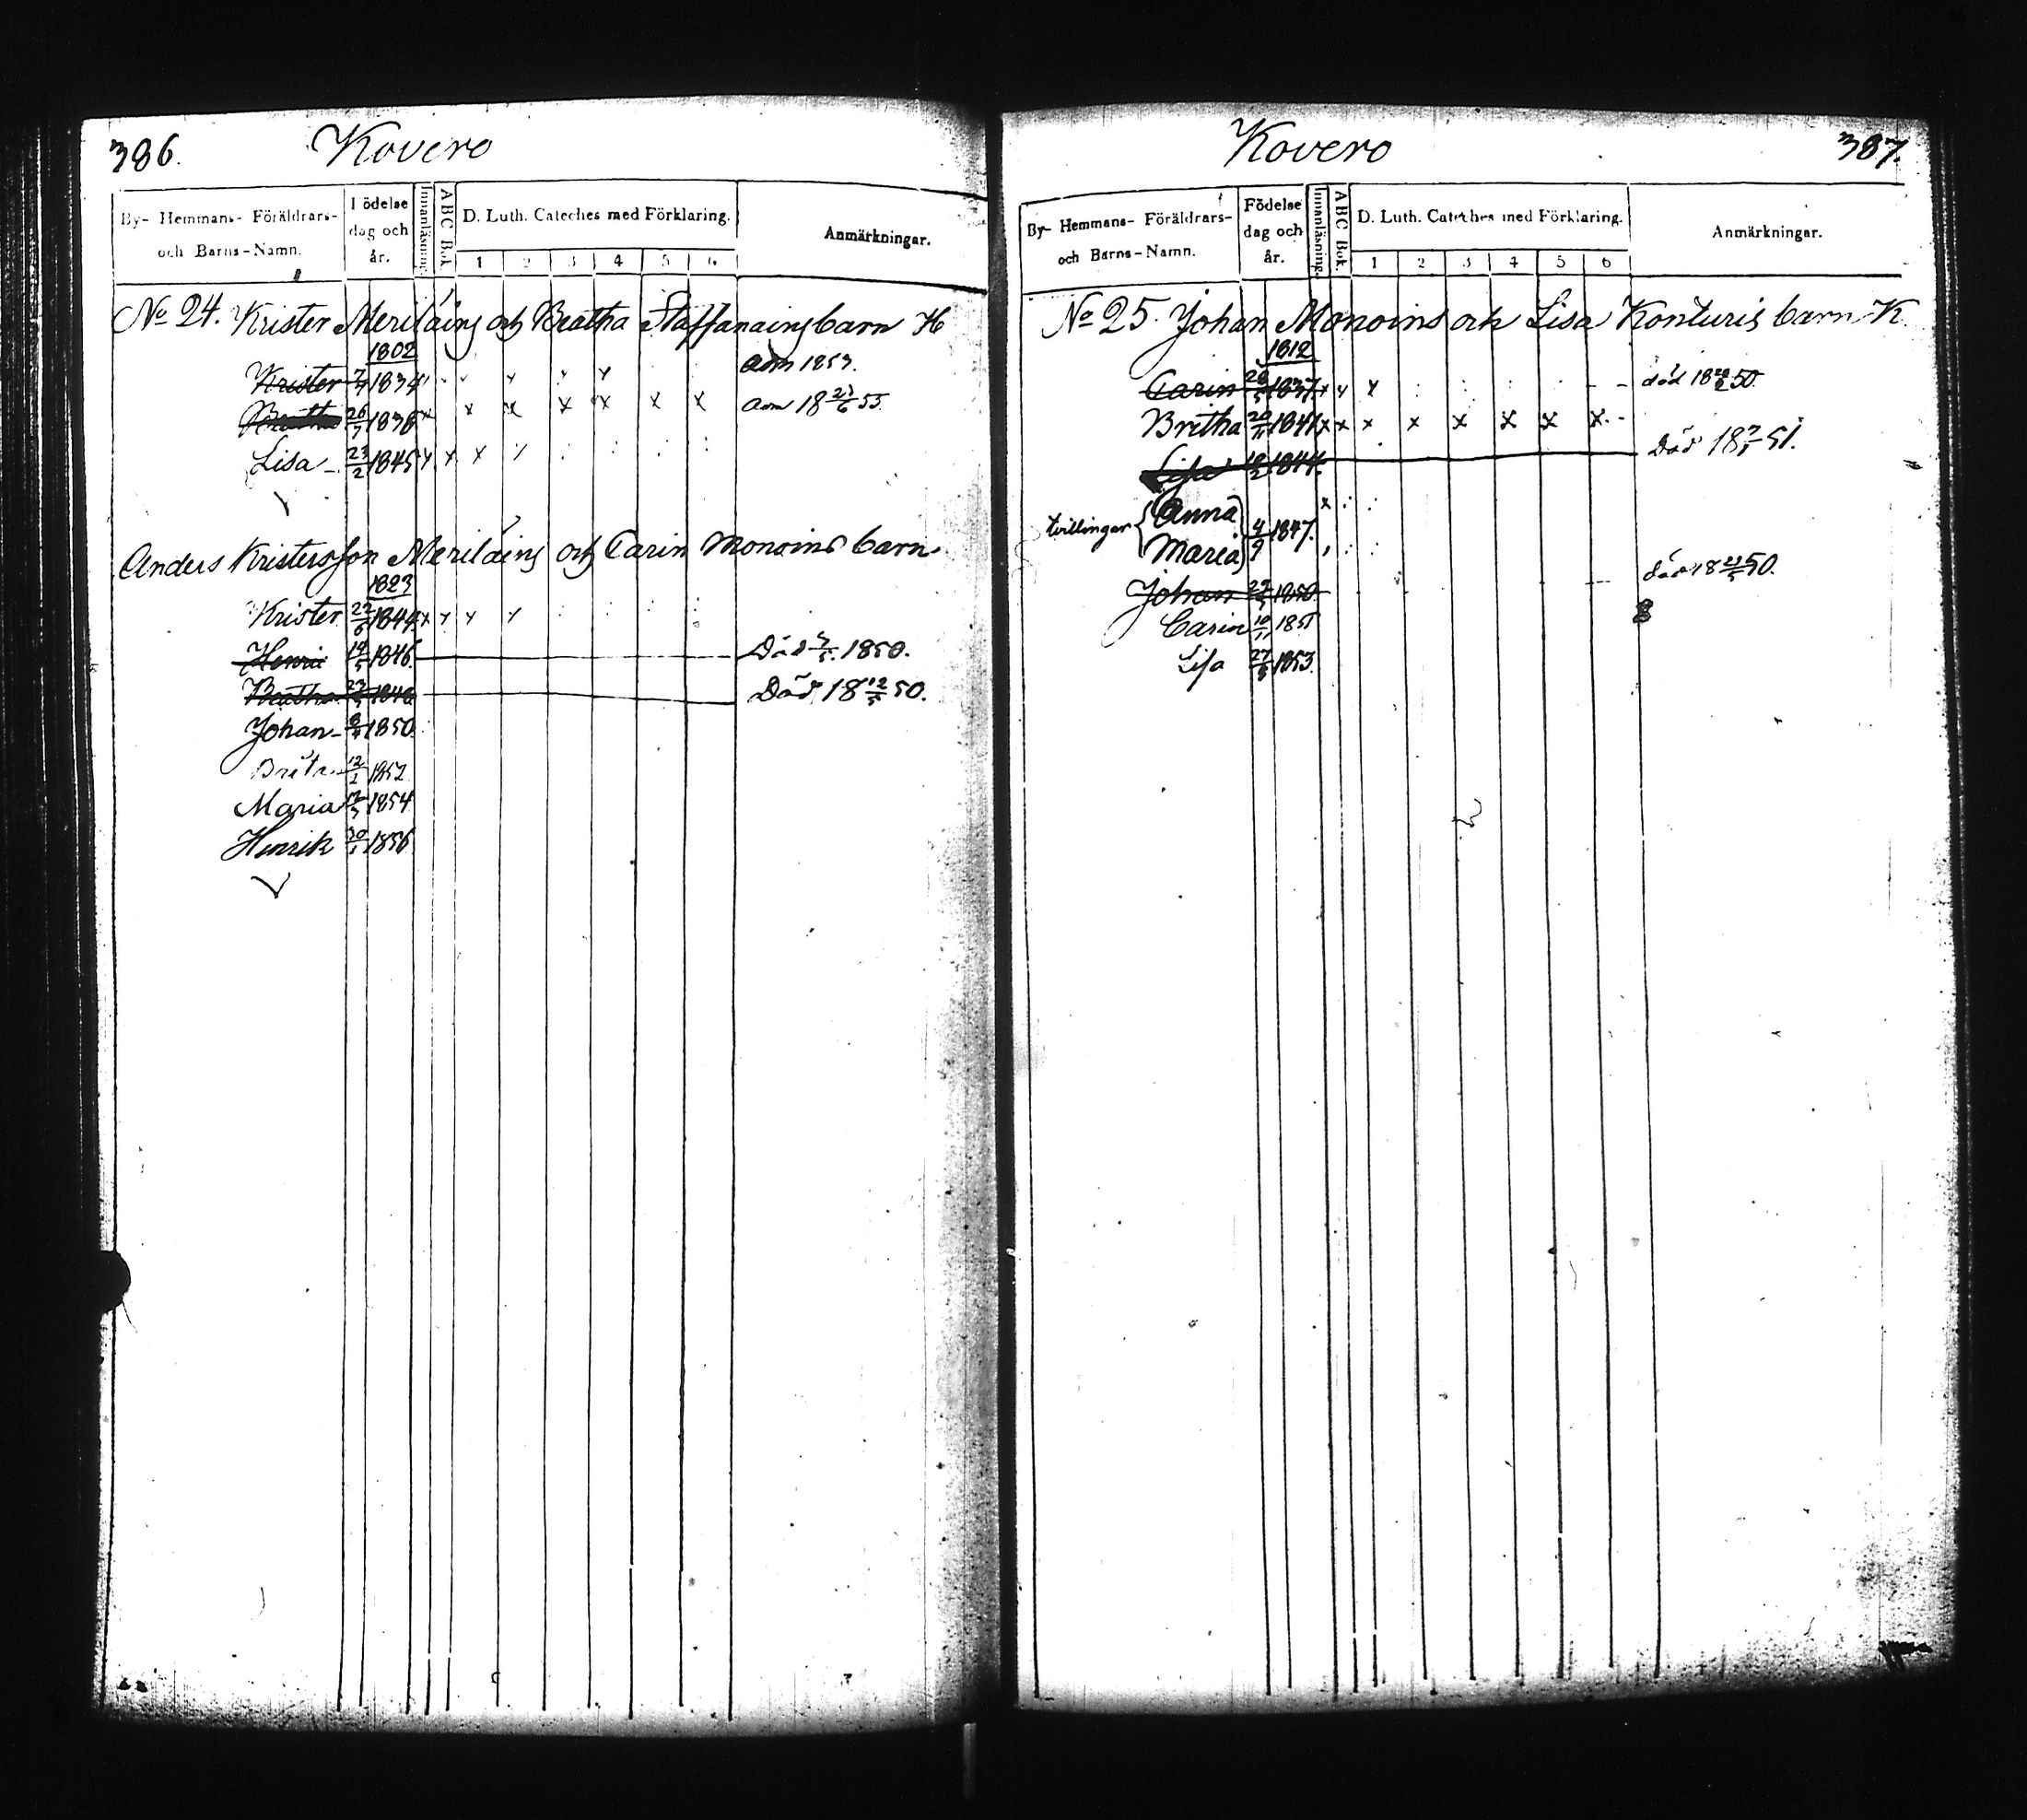 386. Kovero
By- Hemmans- Föräldrars-
och Barns-Namn.
Födelse
dag och
år.
Innanläsning.
ABC Bok.
D. Luth. Cateches med Förklaring.
1 2 3 4 5 6
Anmärkningar.
No 24. Krister Meriläins och Beatha Staffanains barn H
1802
Krister 1834 adm 1853.
26/7 1838 x x x x x x x adm 18 6 55.
Lisa - 23/2 1845 x x x
Anders Kristersson Meriläins och Carin Monoins barn.
1823
Krister 22/6 1844 x
Henric 19/5 1846. Död 1850.
Beatha 1848 Död 18 12/5 50.
Johan - 1850.
Brita 12/2 1852
Maria 1854
Henrik 30 1856
Kovero 387.
By- Hemmans- Föräldrars-
och Barns-Namn.
Födelse
dag och
år.
Innanläsning.
ABC Bok.
D. Luth. Cateches med Förklaring.
1 2 3 4 5 6
Anmärkningar.
No 25. Johan Monoins och Lisa Konturis barn K.
1812
Carin 1837 död 18 50.
Britha 20/11 1841 x x x x x x x x
Lisa 18/2 1844. Död 18 51.
tvillingar { Anna
Maria } 4/9 1847.
Johan 1850 död 18 50.
Carin 10/11 1851
Lisa 27 1853.